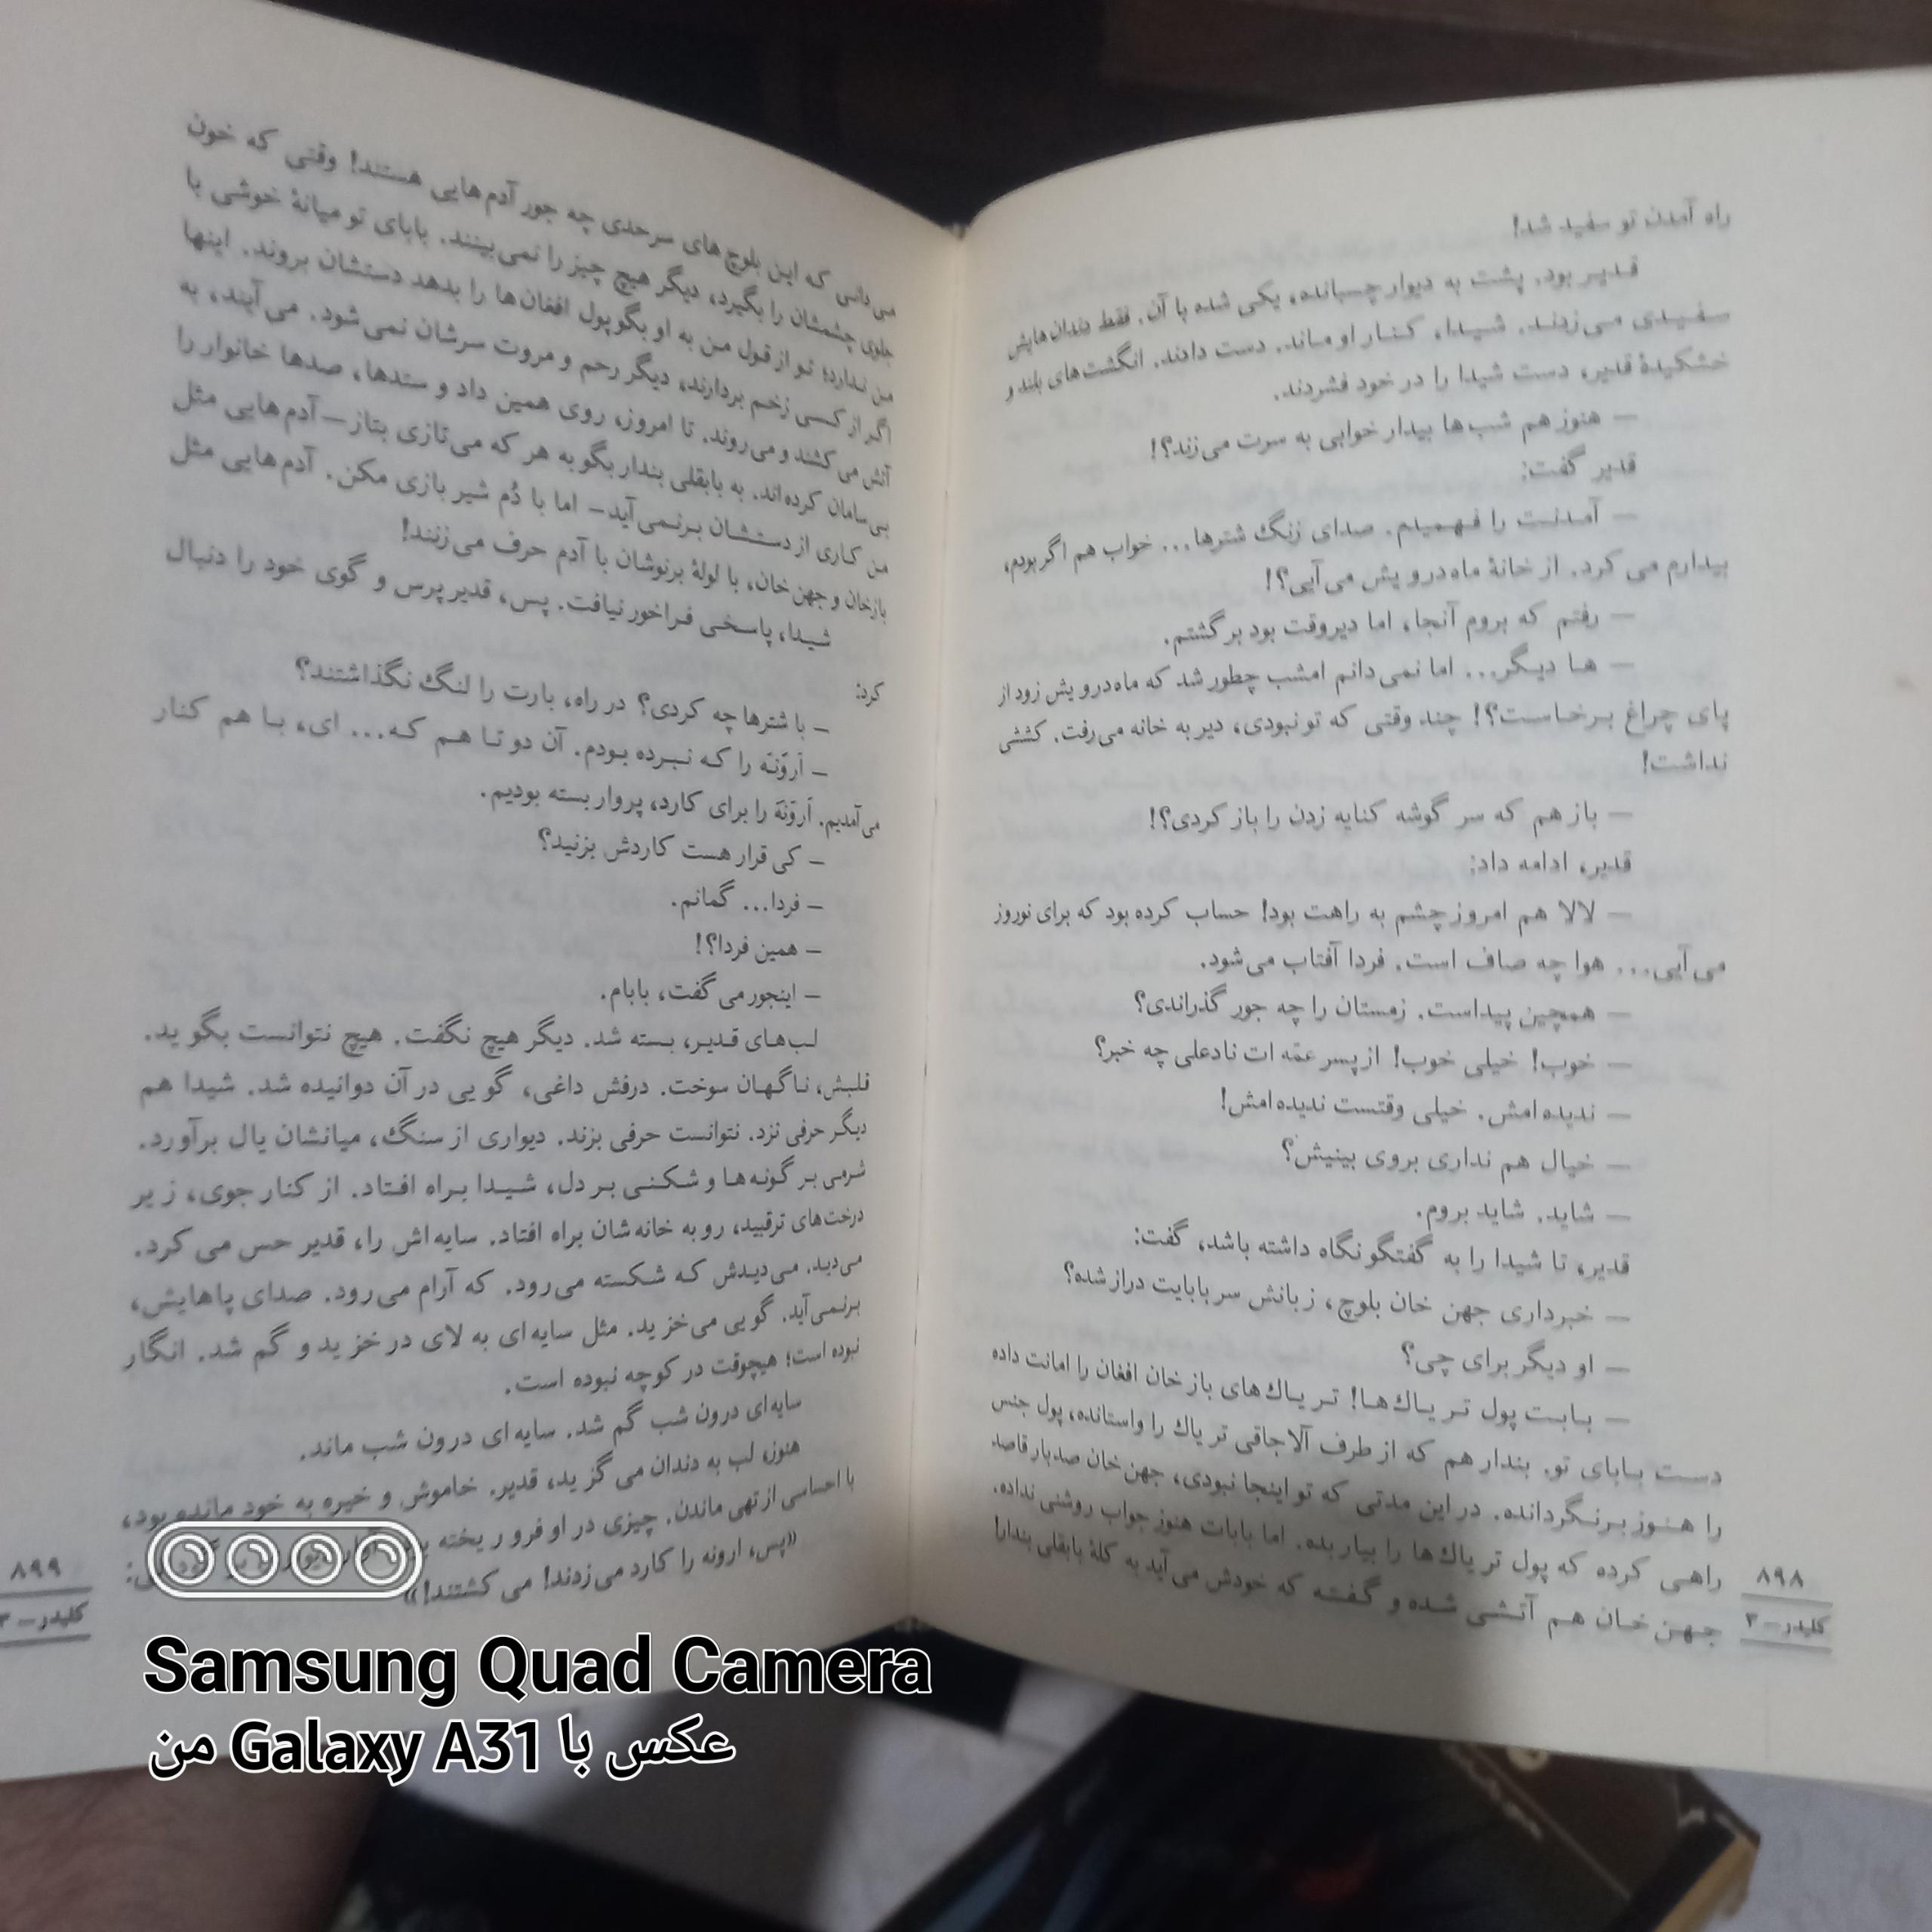 راه آمدن تو سفید شد!
قدیر بود. پشت به دیوار چسبانده، یکی شده با آن. فقط دندان‌هایش
سفیدی می‌زدند. شیدا، کنار او ماند. دست دادند. انگشت‌های بلند و
خشکیدهٔ قدیر، دست شیدا را در خود فشردند.
— هنوز هم شب‌ها بیدار خوابی به سرت می‌زند؟!
قدیر گفت:
— آمدنت را فهمیدم. صدای زنگ شترها... خواب هم اگر بودم،
بیدارم می کرد. از خانهٔ ماه‌درویش می‌آیی؟!
— رفتم که بروم آنجا، اما دیروقت بود برگشتم.
— ها دیگر... اما نمی‌دانم امشب چطور شد که ماه‌درویش زود از
پای چراغ برخاست؟! چند وقتی که تو نبودی، دیر به خانه می‌رفت. کششی
نداشت!
— باز هم که سر گوشه کنایه زدن را باز کردی؟!
قدیر، ادامه داد:
— لالا هم امروز چشم به راهت بود! حساب کرده بود که برای نوروز
می‌آیی... هوا چه صاف است. فردا آفتاب می‌شود.
— همچین پیداست. زمستان را چه جور گذراندی؟
— خوب! خیلی خوب! از پسر عمّه ات نادعلی چه خبر؟
— ندیده‌امش. خیلی وقتست ندیده‌امش!
— خیال هم نداری بروی ببینیش؟
— شاید. شاید بروم.
قدیر، تا شیدا را به گفتگو نگاه داشته باشد، گفت:
— خبرداری جهن خان بلوچ، زبانش سر بابایت دراز شده؟
— او دیگر برای چی؟
— بابت پول تریاک‌ها! تریاک‌های بازخان افغان را امانت داده
دست بابای تو. بندار هم که از طرف آلاجاقی تریاک را واستانده، پول جنس
را هنوز برنگردانده. در این مدتی که تو اینجا نبودی، جهن‌خان صدبار قاصد
راهی کرده که پول تریاک‌ها را بیار بده. اما بابات هنوز جواب روشنی نداده.
جهن خان هم آتشی شده و گفته که خودش می‌آید به کلهٔ بابقلی بندار!
۸۹۸
کلیدر — ۳
می‌دانی که این بلوچ‌های سرحدی چه جور آدم‌هایی هستند! وقتی که خون
جلوی چشمشان را بگیرد، دیگر هیچ چیز را نمی‌بینند. بابای تو میانهٔ خوشی با
من ندارد؛ تو از قول من به او بگو پول افغان‌ها را بدهد دستشان بروند. اینها
اگر از کسی زخم بردارند، دیگر رحم و مروت سرشان نمی‌شود. می‌آیند، به
آتش می کشند و می‌روند. تا امروز، روی همین داد و ستدها، صدها خانوار را
بی‌سامان کرده‌اند. به بابقلی بندار بگو به هر که می‌تازی بتاز — آدم‌هایی مثل
من کاری از دستشان برنمی‌آید — اما با دُم شیر بازی مکن. آدم‌هایی مثل
بازخان و جهن‌خان، با لولهٔ برنوشان با آدم حرف می‌زنند!
شیدا، پاسخی فراخور نیافت. پس، قدیر پرس و گوی خود را دنبال
کرد:
— با شترها چه کردی؟ در راه، بارت را لنگ نگذاشتند؟
— اَروَنَه را که نبرده بودم. آن دو تا هم که... ای، با هم کنار
می‌آمدیم. اَروَنَه را برای کارد، پروار بسته بودیم.
— کی قرار هست کاردش بزنید؟
— فردا... گمانم.
— همین فردا؟!
— اینجور می گفت، بابام.
لب‌های قدیر، بسته شد. دیگر هیچ نگفت. هیچ نتوانست بگوید.
قلبش، ناگهان سوخت. درفش داغی، گویی در آن دوانیده شد. شیدا هم
دیگر حرفی نزد. نتوانست حرفی بزند. دیواری از سنگ، میانشان یال برآورد.
شرمی بر گونه‌ها و شکنی بر دل، شیدا براه افتاد. از کنار جوی، زیر
درخت‌های ترقبید، رو به خانه‌شان براه افتاد. سایه‌اش را، قدیر حس می کرد.
می‌دید. می‌دیدش که شکسته می‌رود. که آرام می‌رود. صدای پاهایش،
برنمی‌آید. گویی می‌خزید. مثل سایه‌ای به لای در خزید و گم شد. انگار
نبوده است؛ هیچوقت در کوچه نبوده است.
سایه‌ای درون شب گم شد. سایه‌ای درون شب ماند.
هنوز، لب به دندان می گزید، قدیر. خاموش و خیره به خود مانده بود،
با احساسی از تهی ماندن. چیزی در او فرو ریخته
«پس، ارونه را کارد می‌زدند! می کشتند!»
۸۹۹
کلیدر — ۳
Samsung Quad Camera
عکس با Galaxy A31 من